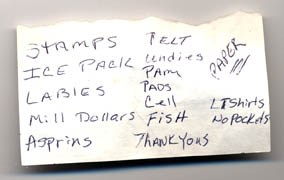 STAMPS
ICE PACK
LABIES
Mill Dollars
Asprins
PELT
Undies
PAM
PADS
Cell
FISH
THANK YOUS
PAPER
LTShirts
No Pockets